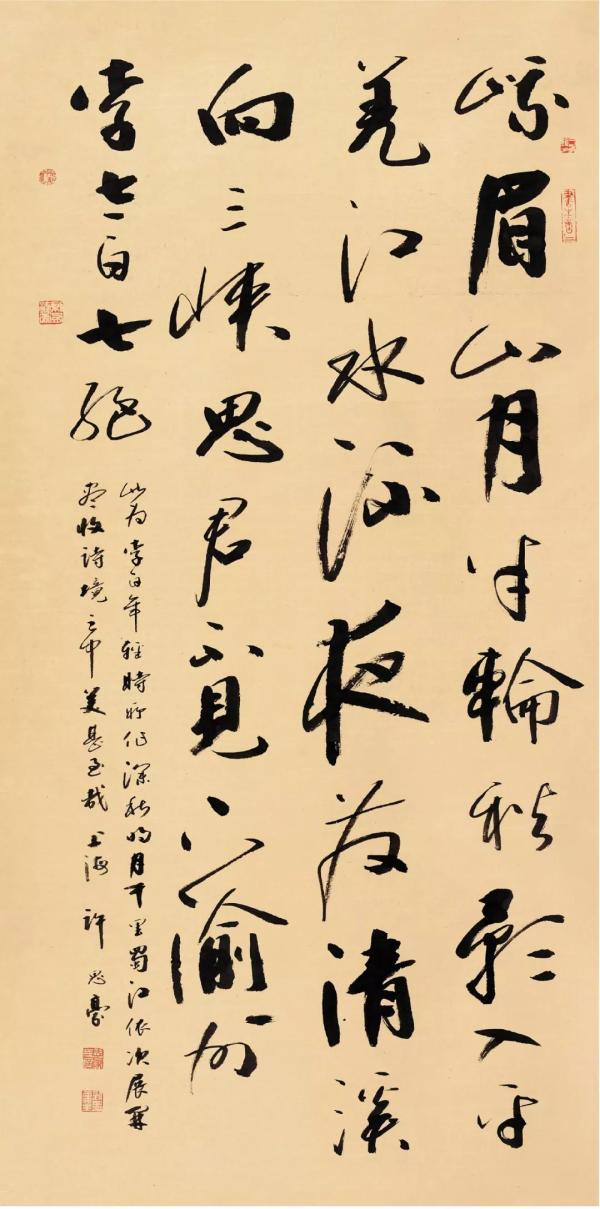 峨眉山月半輪秋影入平
羌江水流夜發清溪
向三峽思君不見下渝州
李太白七絕
此為李白年輕時所作深秋明月千里蜀江依次展開
盡收詩境之中美甚至哉上海許思豪